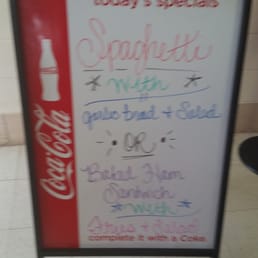 today's specials
Spaghetti
* with *
garlic bread + Salad
OR
Baked Ham
Sandwich
* with *
Fries + Salad
complete it with a Coke
Coca-Cola